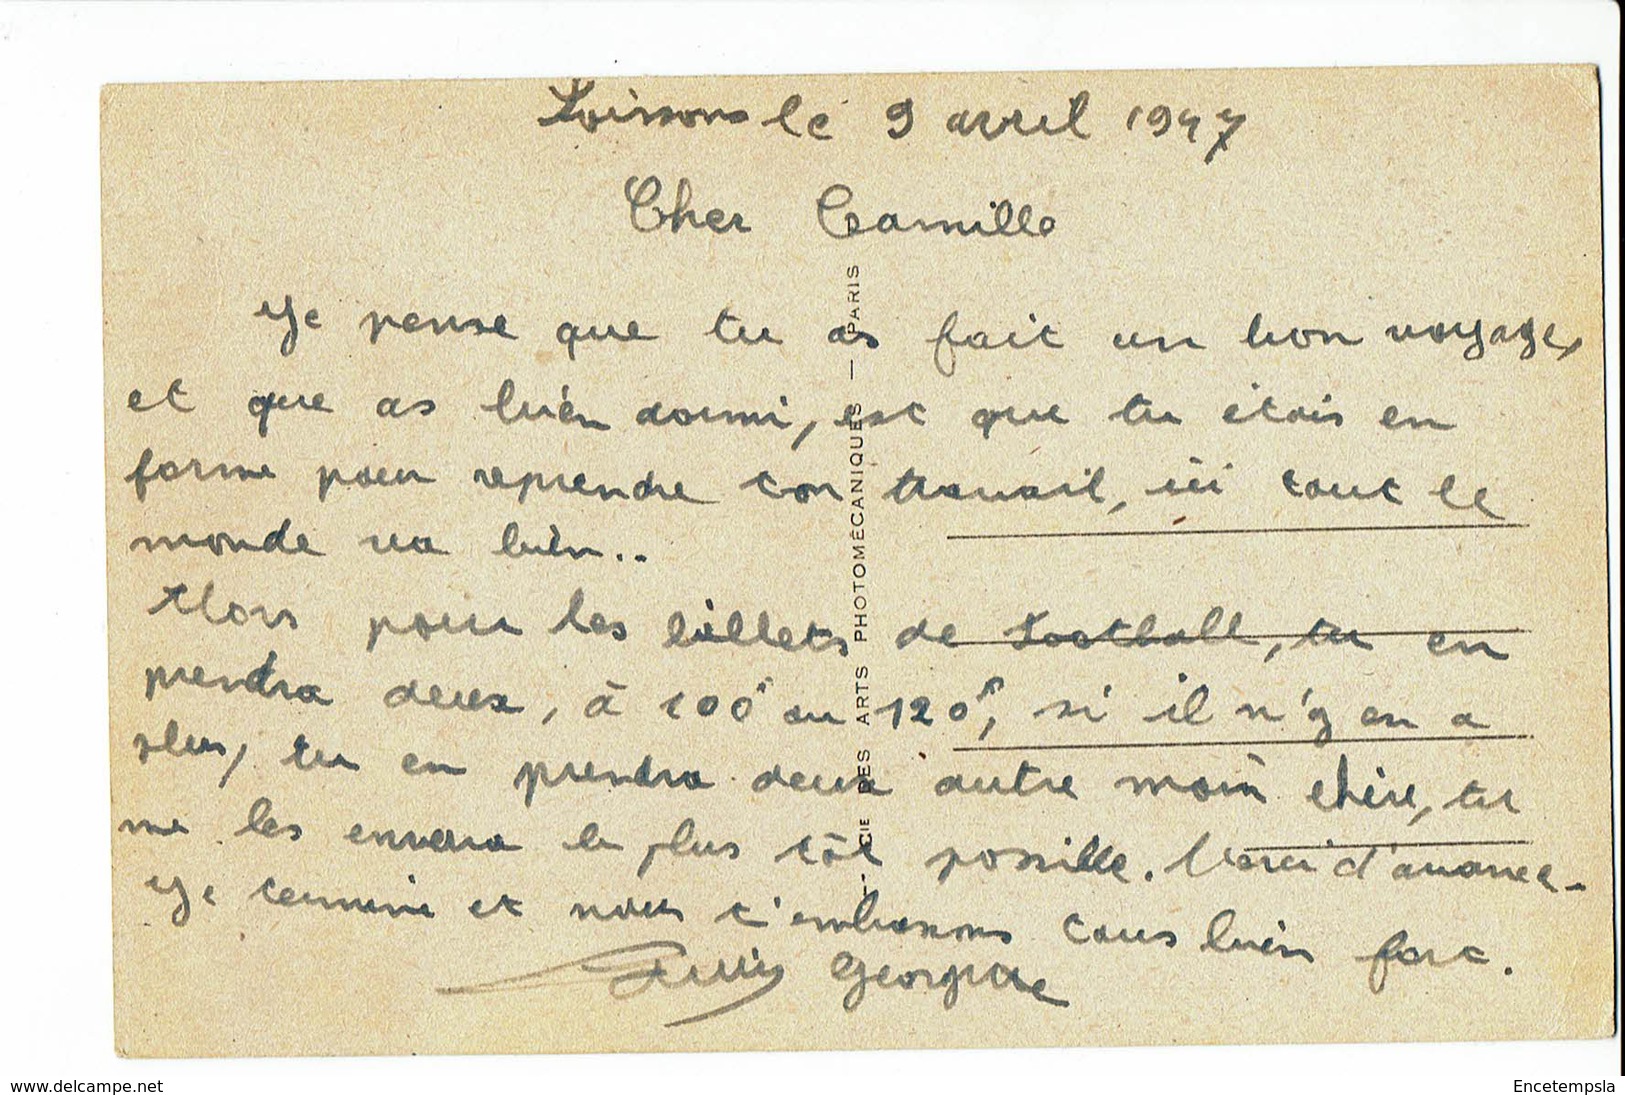 Soissons le 9 avril 1947
Cher Camille
Je pense que tu as fait un bon voyage,
et que as bien dormi, est que tu étais en
forme pour reprendre ton travail, ici tout le
monde va bien..
Alors pour les billets de Football, tu en
prendra deux, à 100f ou 120f, si il n'y en a
plus, tu en prendra deux autre moin chère, tu
me les enverra le plus tôt possible. Merci d'avance.
Je termine et nous t'embrassons tous bien fort.
Georgette
CIE DES ARTS PHOTOMÉCANIQUES — PARIS
www.delcampe.net
Encetempsla